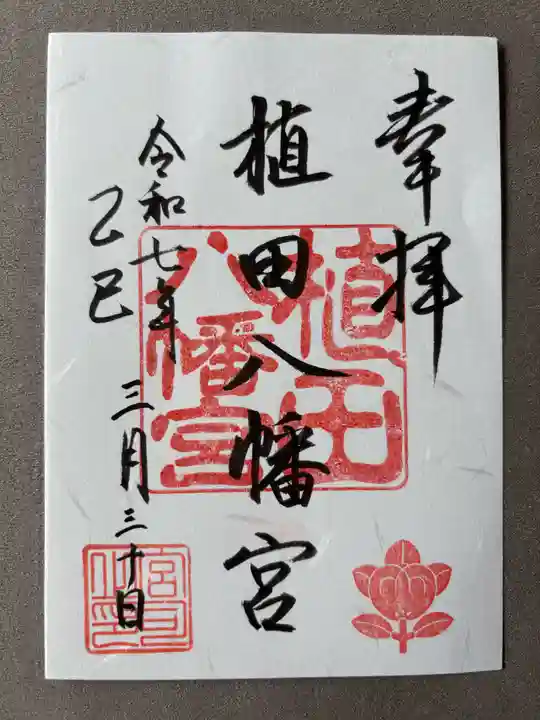 奉拝
植田八幡宮
令和七年
乙巳
三月三十日
植田
八幡宮
宮司之印